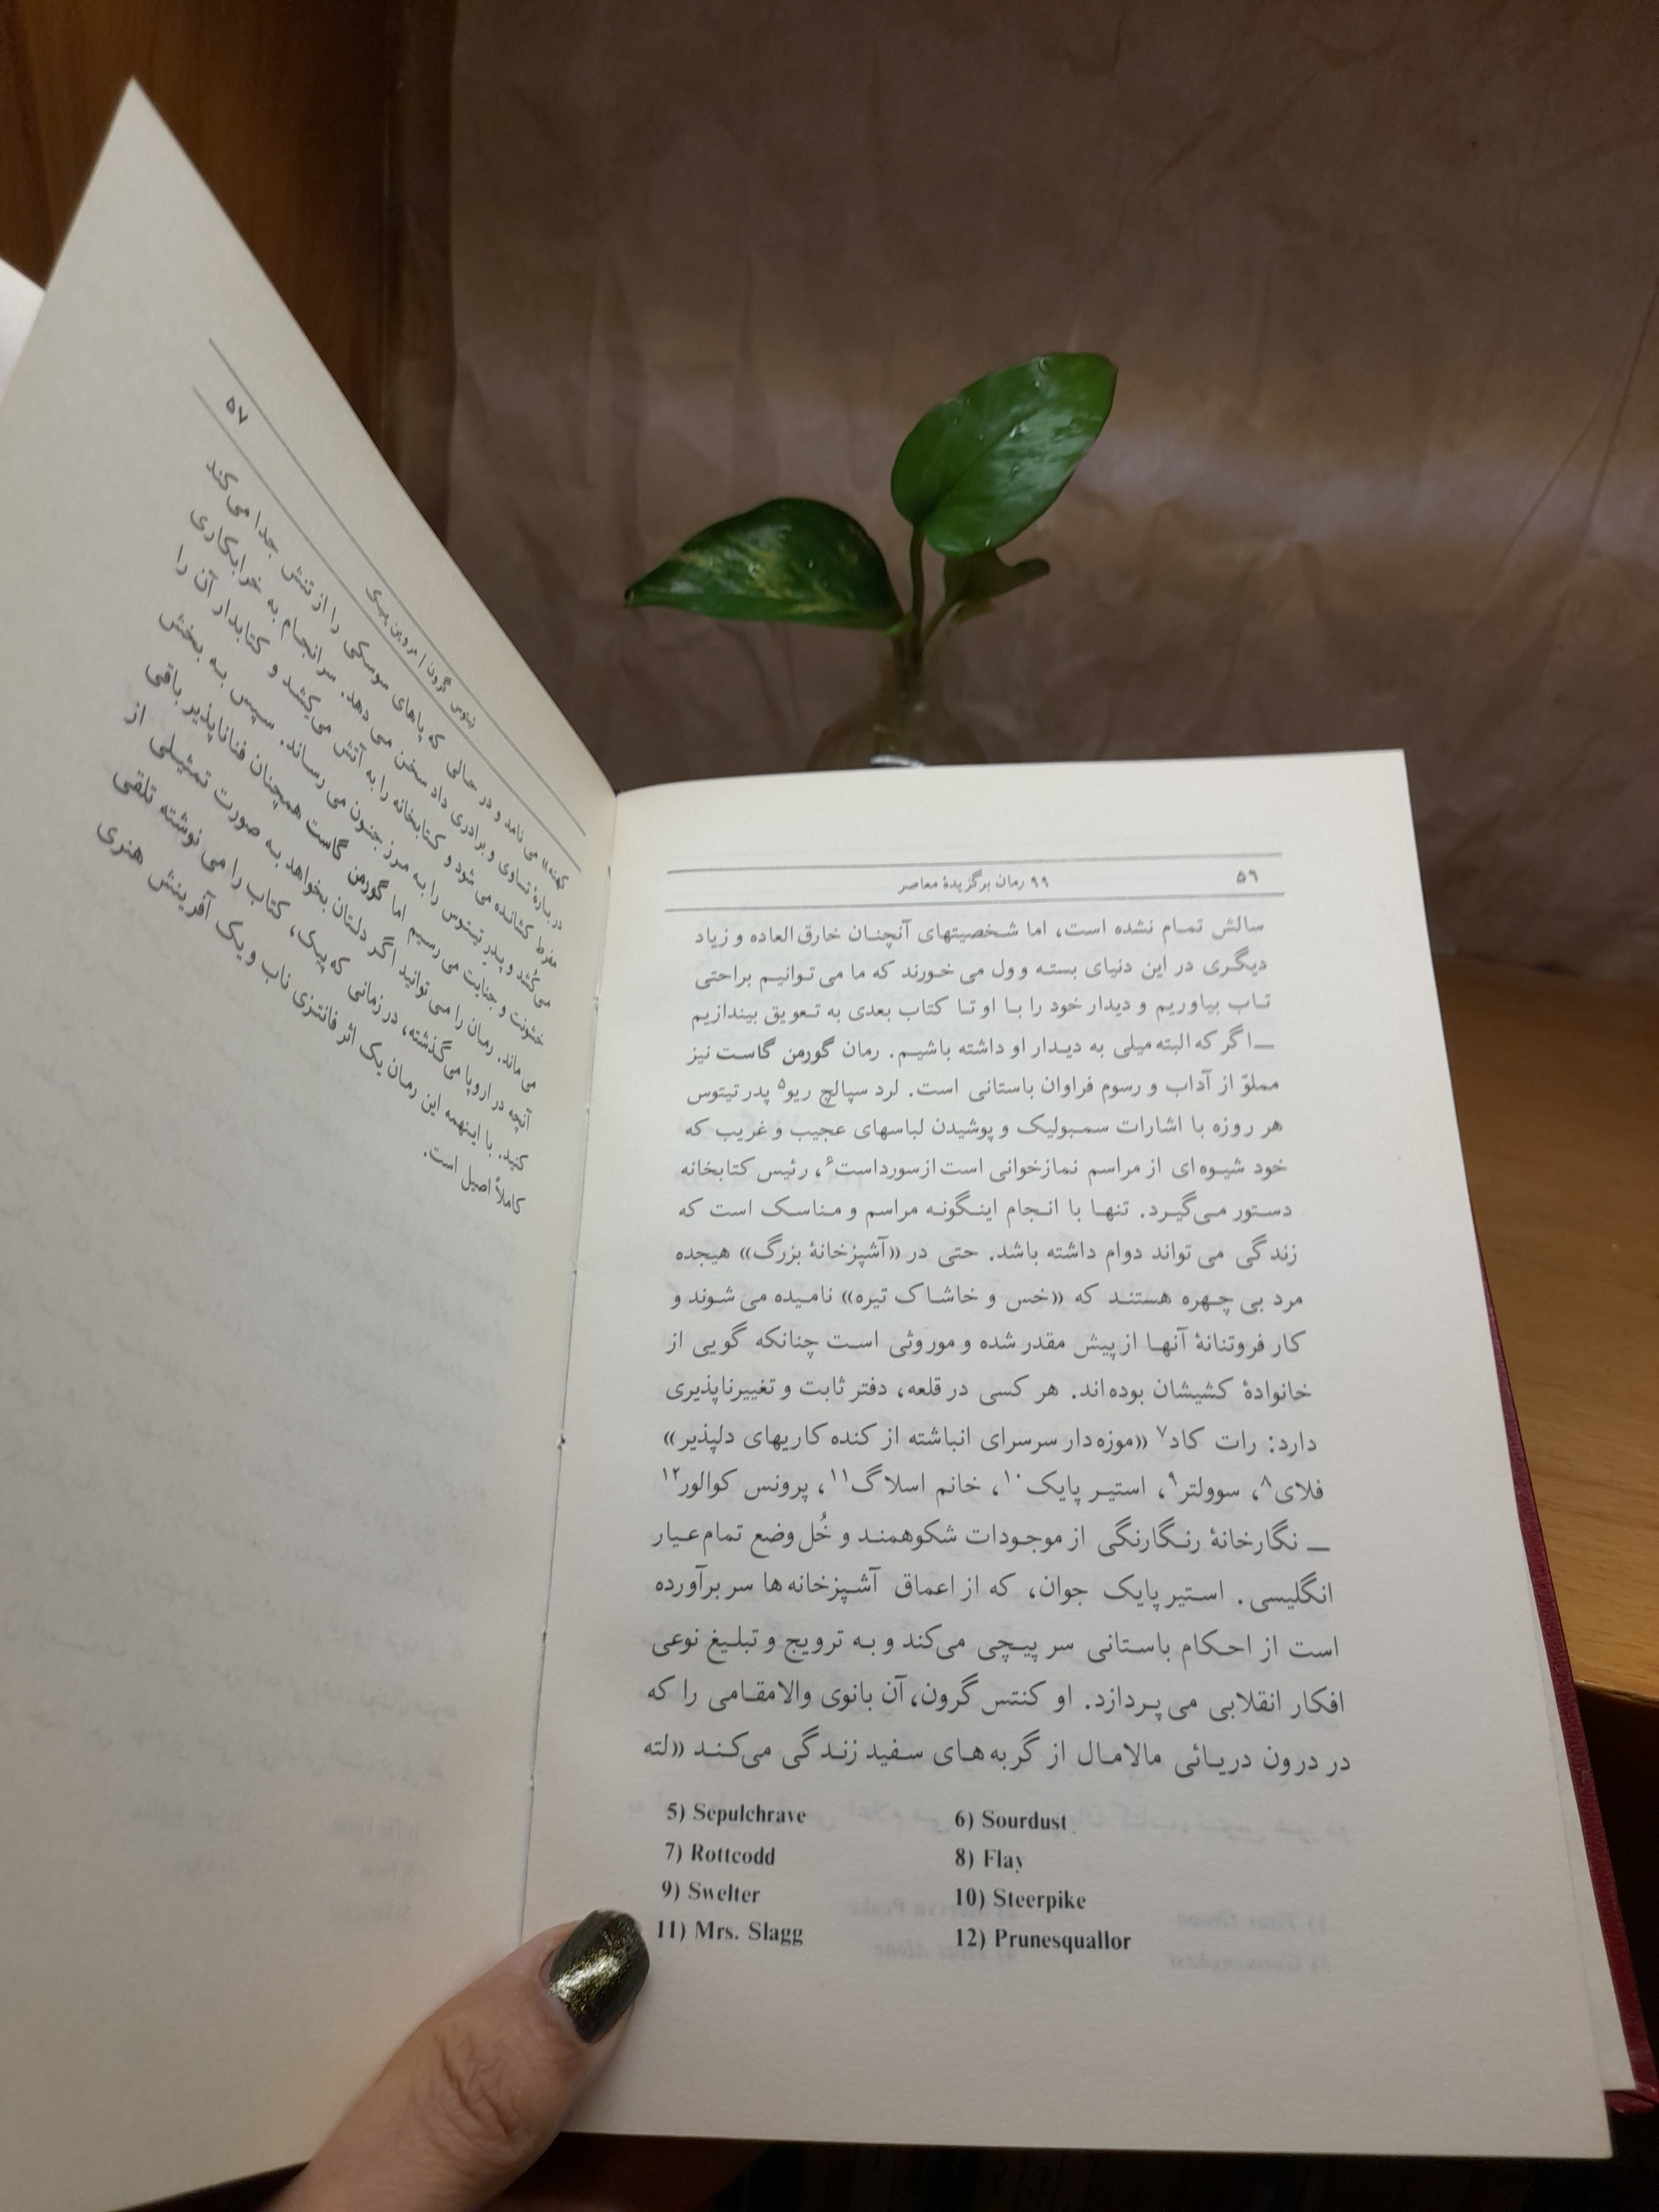 ۵۶
۹۹ رمان برگزیدهٔ معاصر
سالش تمام نشده است، اما شخصیتهای آنچنان خارق العاده و زیاد
دیگری در این دنیای بسته وول می خورند که ما می توانیم براحتی
تاب بیاوریم و دیدار خود را با او تا کتاب بعدی به تعویق بیندازیم
— اگر که البته میلی به دیدار او داشته باشیم. رمان گورمن گاست نیز
مملو از آداب و رسوم فراوان باستانی است. لرد سپالچ ریو۵ پدر تیتوس
هر روزه با اشارات سمبولیک و پوشیدن لباسهای عجیب و غریب که
خود شیوه ای از مراسم نمازخوانی است از سورداست۶، رئیس کتابخانه
دستور می گیرد. تنها با انجام اینگونه مراسم و مناسک است که
زندگی می تواند دوام داشته باشد. حتی در «آشپزخانهٔ بزرگ» هیجده
مرد بی چهره هستند که «خس و خاشاک تیره» نامیده می شوند و
کار فروتنانهٔ آنها از پیش مقدر شده و موروثی است چنانکه گویی از
خانوادهٔ کشیشان بوده اند. هر کسی در قلعه، دفتر ثابت و تغییرناپذیری
دارد: رات کاد۷ «موزه دار سرسرای انباشته از کنده کاریهای دلپذیر»
فلای۸، سوولتر۹، استیر پایک۱۰، خانم اسلاگ۱۱، پرونس کوالور۱۲
— نگارخانهٔ رنگارنگی از موجودات شکوهمند و خُل وضع تمام عیار
انگلیسی. استیر پایک جوان، که از اعماق آشپزخانه ها سر برآورده
است از احکام باستانی سر پیچی می کند و به ترویج و تبلیغ نوعی
افکار انقلابی می پردازد. او کنتس گرون، آن بانوی والامقامی را که
در درون دریائی مالامال از گربه های سفید زندگی می کند «لته
5) Sepulchrave
6) Sourdust
7) Rottcodd
8) Flay
9) Swelter
10) Steerpike
11) Mrs. Slagg
12) Prunesquallor
تیتوس گرون / مروین پیک
۵۷
کهنه» می نامد و در حالی که پاهای سوسکی را از تنش جدا می کند
دربارهٔ تساوی و برابری داد سخن می دهد. سرانجام به خرابکاری
مفرط کشانده می شود و کتابخانه را به آتش می کشد و کتابدار آن را
می کُشد و پدر تیتوس را به مرز جنون می رساند. سپس به بخش
خشونت و جنایت می رسیم اما گورمن گاست همچنان فناناپذیر باقی
می ماند. رمان را می توانید اگر دلتان بخواهد به صورت تمثیلی از
آنچه در اروپا می گذشته، در زمانی که پیک، کتاب را می نوشته تلقی
کنید. با اینهمه این رمان یک اثر فانتزی ناب و یک آفرینش هنری
کاملاً اصیل است.